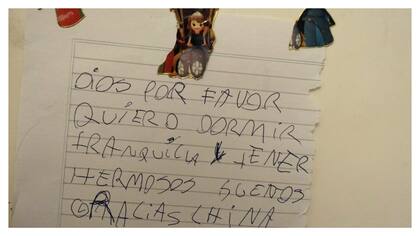 DIOS POR FAVOR
QUIERO DORMIR
TRANQUILA Y TENER
HERMOSOS SUEÑOS
GRACIAS CHINA